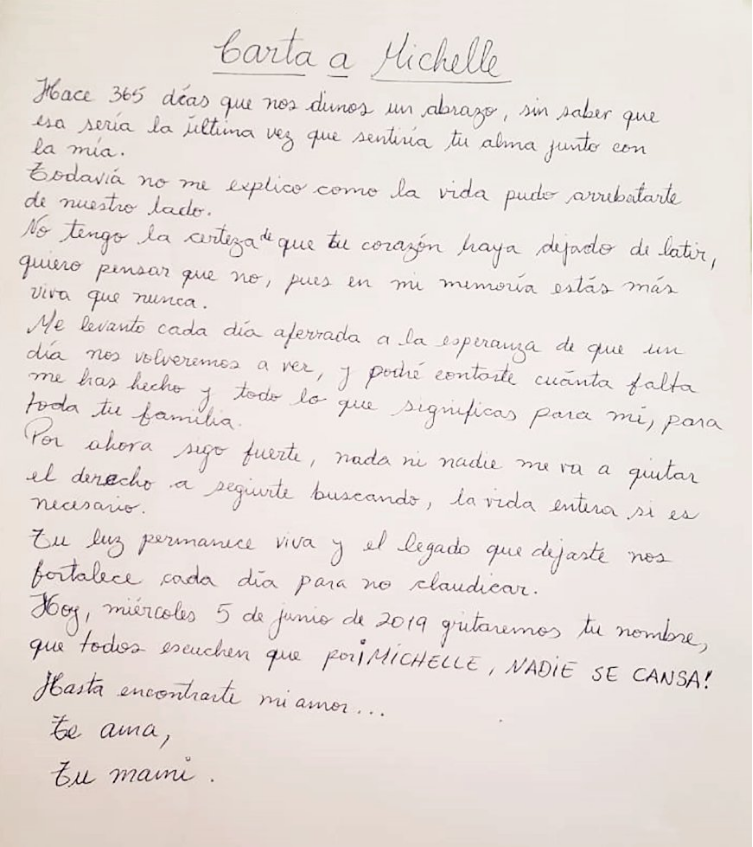 Carta a Michelle
Hace 365 días que nos dimos un abrazo, sin saber que
esa sería la última vez que sentiría tu alma junto con
la mía.
Todaviá no me explico como la vida pudo arrebatarte
de nuestro lado.
No tengo la certeza de que tu corazón haya dejado de latir,
quiero pensar que no, pues en mi memoria estás más
viva que nunca.
Me levanto cada día aferrada a la esperanza de que un
día nos volveremos a ver, y podré contarte cuánta falta
me has hecho y todo lo que significas para mí, para
toda tu familia.
Por ahora sigo fuerte, nada ni nadie me va a quitar
el derecho a seguirte buscando, la vida entera si es
necesario.
Tu luz permanece viva y el legado que dejaste nos
fortalece cada día para no claudicar.
Hoy, miércoles 5 de junio de 2019 gritaremos tu nombre,
que todos escuchen que por ¡MICHELLE, NADIE SE CANSA!
Hasta encontrarte mi amor...
Te ama,
Tu mami.